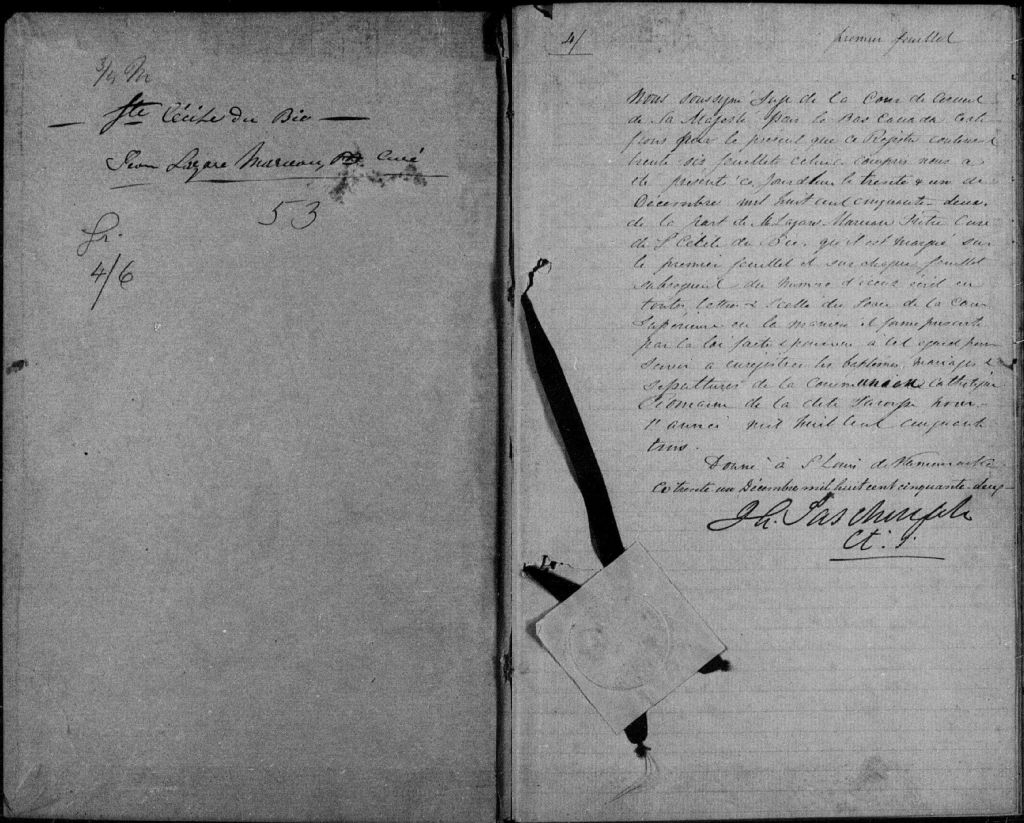 3/4 M
Ste Cécile du Bic
Jean Lazare Marceau, Curé
53
Gr.
4/6
4/
premier feuillet
Nous soussigné Juge de la Cour de Circuit
de sa Majesté pour le Bas Canada Certi
fions par le present que ce Registre contenant
trente six feuillets celui-ci compris nous a
été présenté ce jourdhui le trente & un de
Décembre mil huit cent cinquante-deux
de la part de M Lazare Marceau Prêtre Curé
de Ste Cécile du Bic, qu'il est marqué sur
le premier feuillet et sur chaque feuillet
subséquent du numéro d'iceux écrit en
toutes lettres & scellé du sceau de la Cour
Supérieure en la manière et forme prescrite
par la loi faite & pourvue à cet égard pour
servir a enregistrer les baptêmes, mariages &
sépultures de la communion Catholique
Romaine de la dite Paroisse pour
l'année mil huit cent cinquante
trois.
Donné à St Louis de Kamouraska
Ce trente un Décembre mil huit cent cinquante-deux